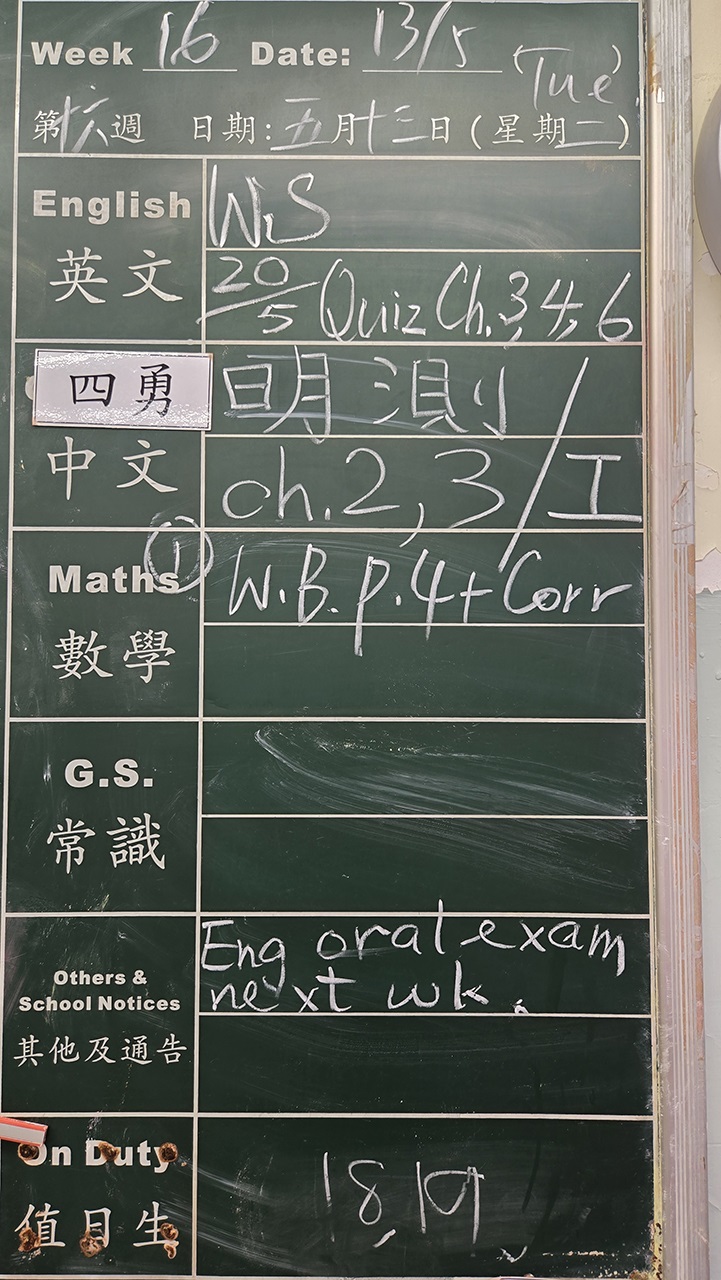 Week 16 Date: 13/5 (Tue.)
第十六週 日期:五月十三日(星期二)
English W.S
英文 20/5 Quiz Ch.3,4,6
四勇 明測/
中文 ch.2,3/工
Maths ① W.B.p.4+Corr
數學
G.S.
常識
Others & Eng oral exam
School Notices next wk.
其他及通告
On Duty 18,19
值日生